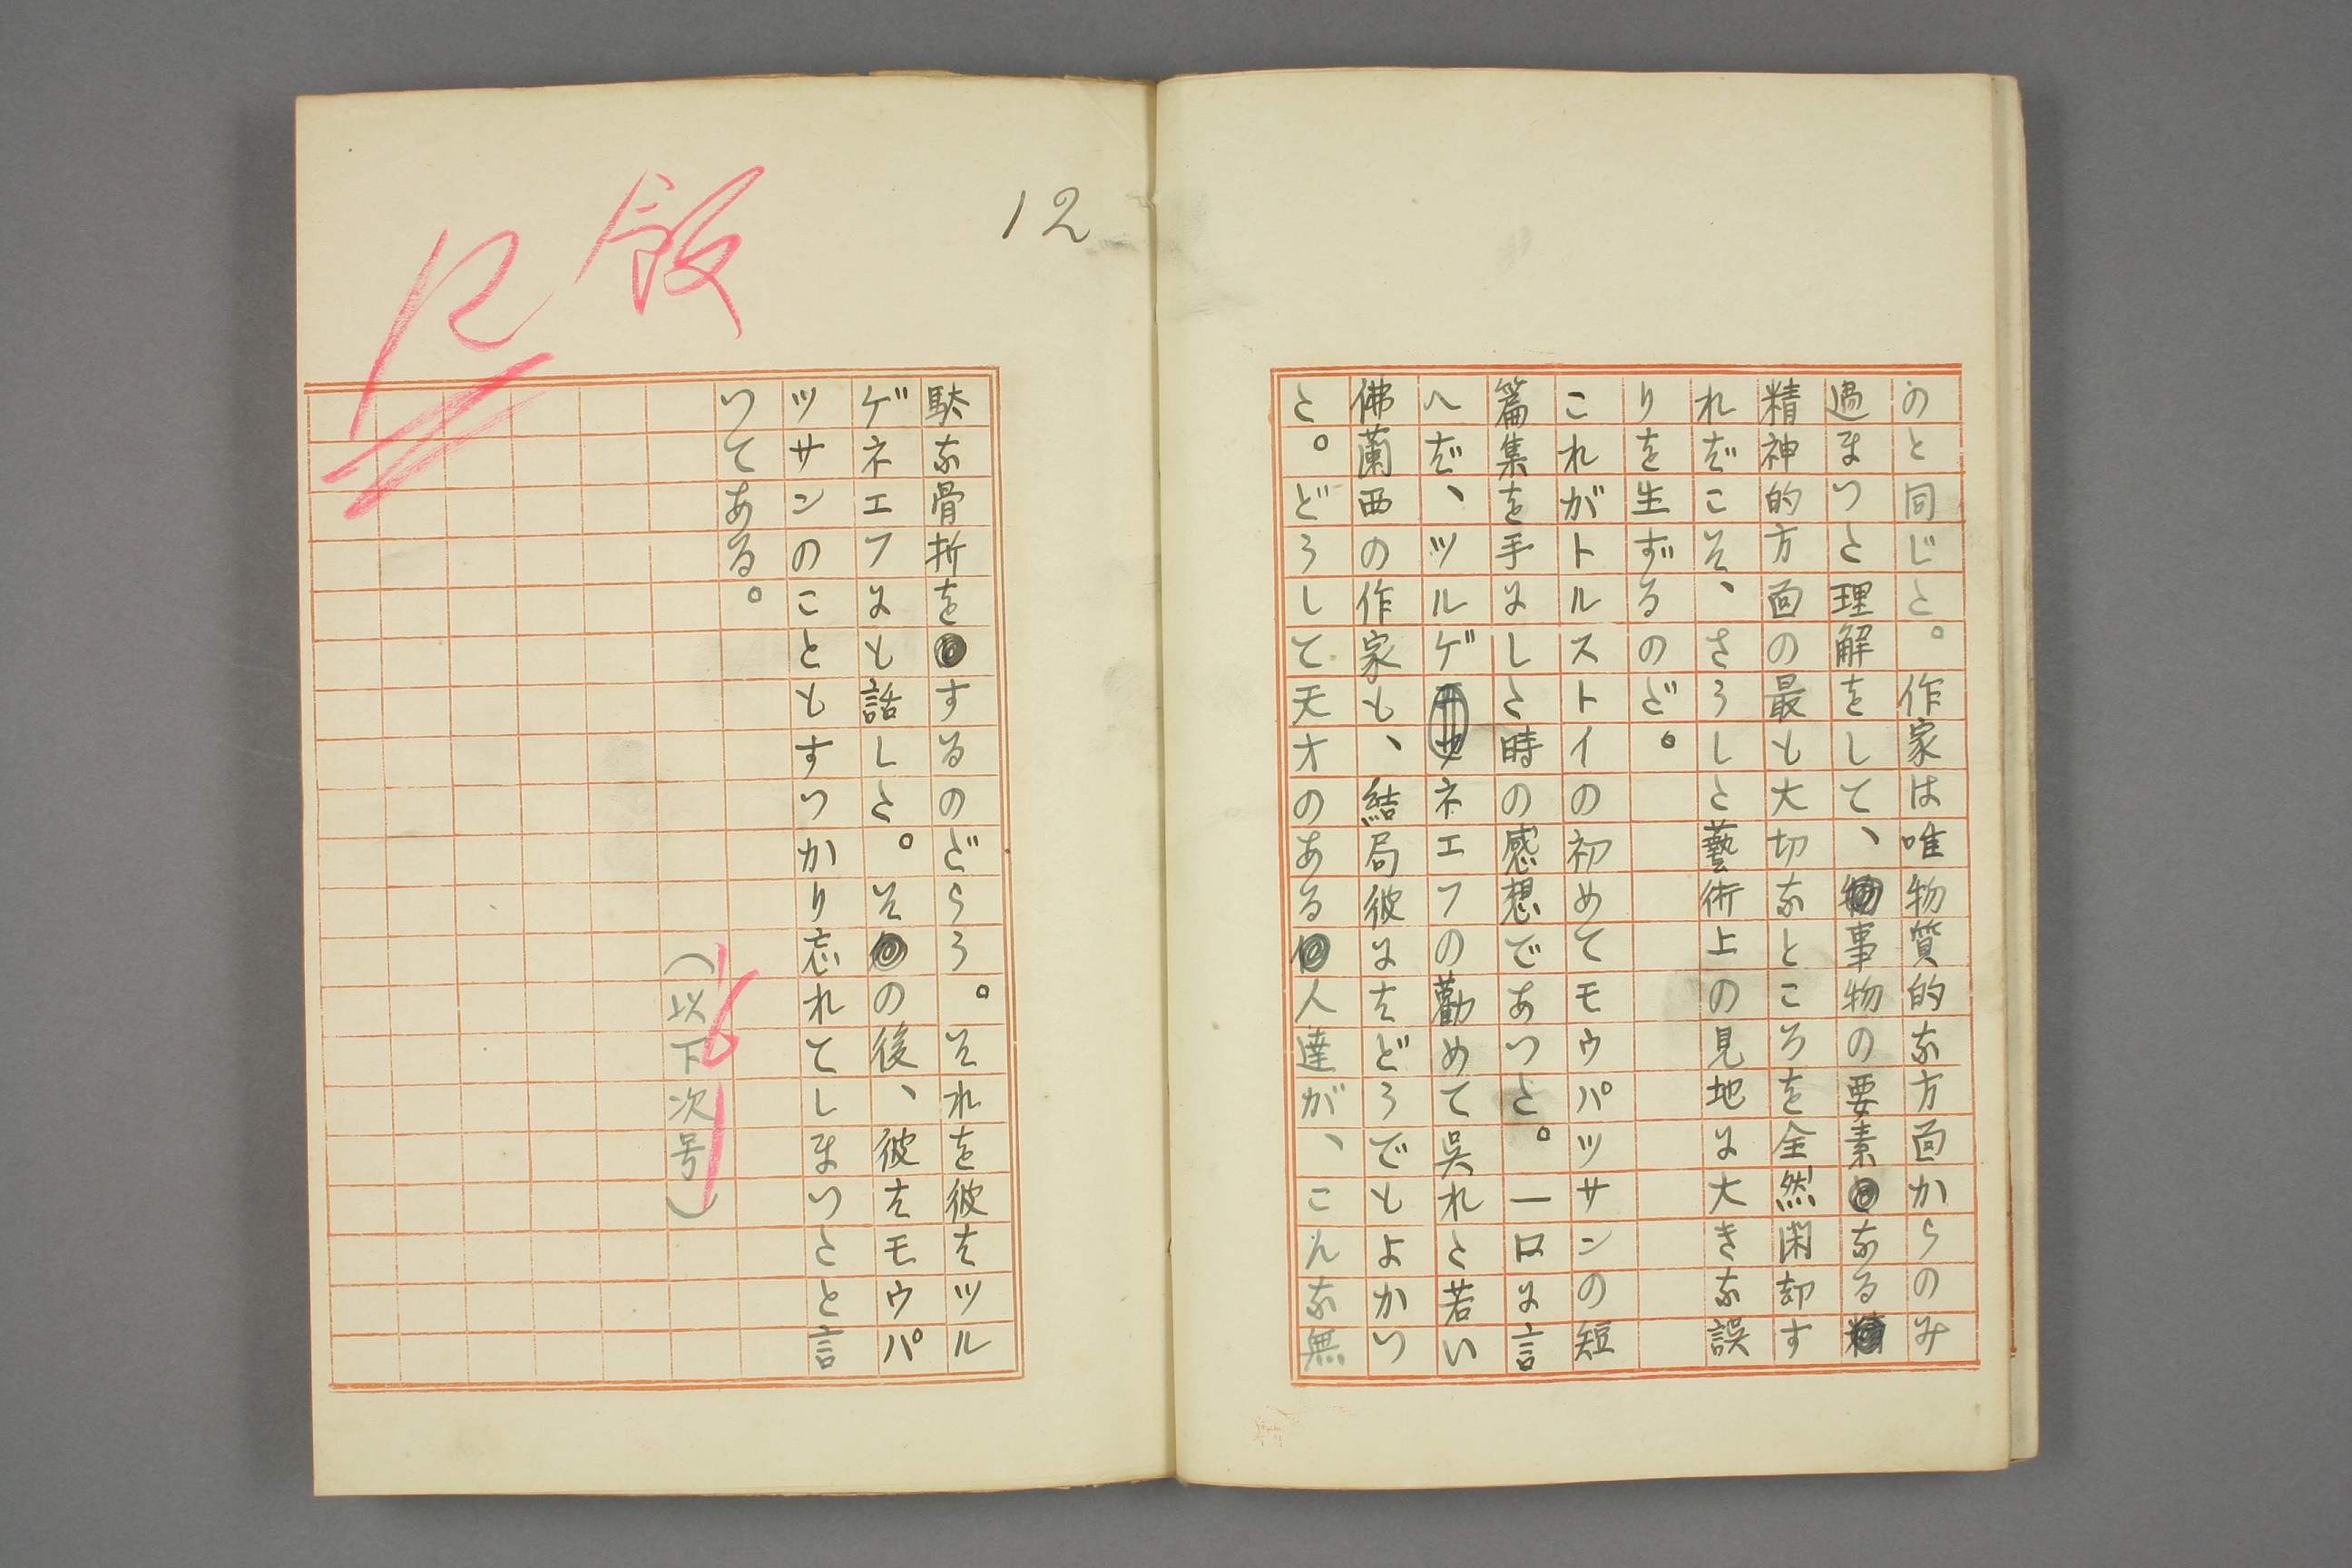 のと同じだ。作家は唯物質的な方面からのみ
過まつた理解をして、事物の要素なる
精神的方面の最も大切なところを全然閑却す
ればこそ、さうした藝術上の見地に大きな誤
りを生ずるのだ。
これがトルストイの初めてモウパツサンの短
篇集を手にした時の感想であつた。一口に言
へば、ツルゲネエフの勸めて呉れた若い
佛蘭西の作家も、結局彼にはどうでもよかつ
た。どうして天才のある人達が、こんな無
12
飯
12
駄な骨折をするのだらう。それを彼はツル
ゲネエフにも話した。その後、彼はモウパ
ツサンのこともすつかり忘れてしまつたと言
つてある。
(以下次号)